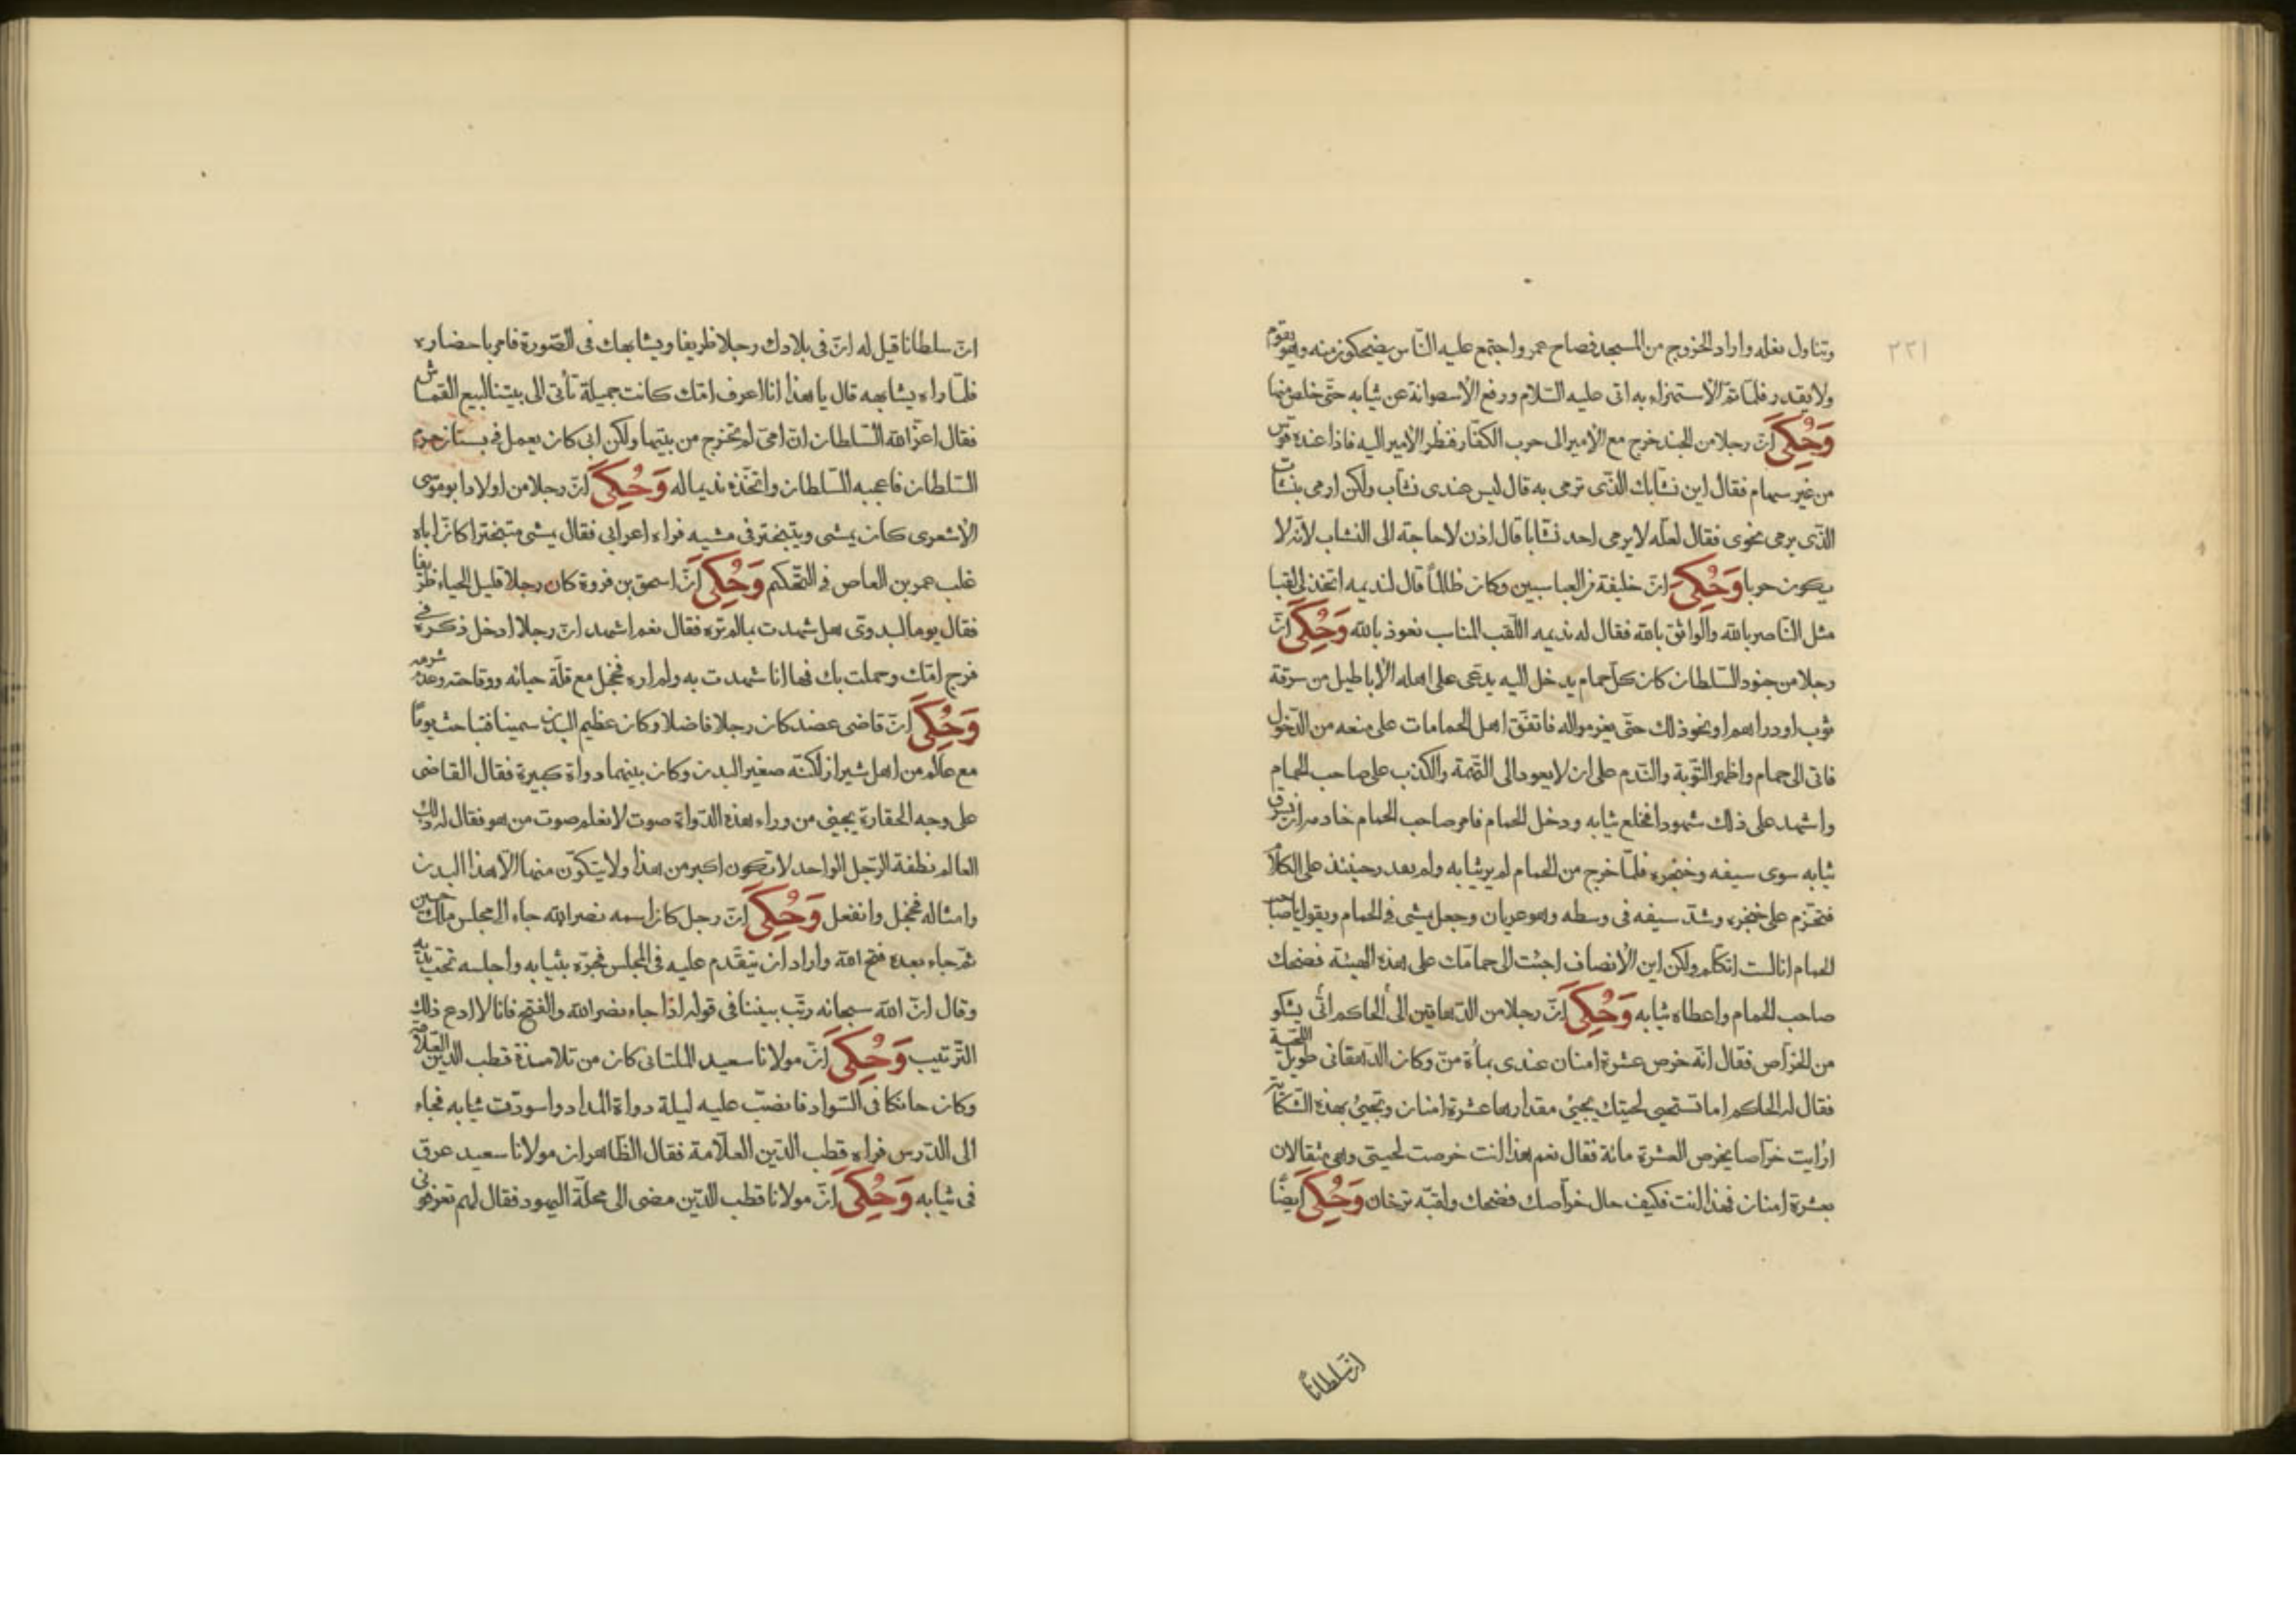 ٢٢١
وتناول نعله واراد الخروج من المسجد فصاح عمر واجتمع عليه الناس يضحكون منه وهو يقوم
ولا يقدر فلمّا تمّ الاستهزاء به اتى عليه السّلام ورفع الاسطوانة عن ثيابه حتّى خلص منها
وَحُكِيَ انّ رجلا من الجند خرج مع الامير الى حرب الكفّار فنظر الامير اليه فاذا عنده قوس
من غير سهام فقال اين نشّابك الذّى ترمى به قال ليس عندى نشّاب ولكن ارمى بنشّاب
الذّى يرمى نحوى فقال لعلّه لا يرمى احد نشّابا قال اذن لا حاجة الى النشاب لانّه لا
يكون حربا وَحُكِيَ انّ خليفة من العباسيين وكان ظالماً قال لنديمه اتخذ لى لقبا
مثل النّاصر بالله والواثق بالله فقال له نديمه اللّقب المناسب نعوذ بالله وَحُكِيَ انّ
رجلا من جنود السّلطان كان كلّ حمام يدخل اليه يدّعى على اهله الاباطيل من سرقة
ثوب او دراهم او نحو ذلك حتّى يغرمواله فاتفّق اهل الحمامات على منعه من الدّخول
فاتى الى حمام واظهر التّوبة والنّدم على ان لا يعود الى التّهمة والكذب على صاحب الحمام
واشهد على ذلك شهودا فخلع ثيابه ودخل الحمام فامر صاحب الحمام خادمه ان يسرق
ثيابه سوى سيفه وخنجره فلمّا خرج من الحمام لم ير ثيابه ولم يقدر حينئذ على الكلام
فتحزّم على خنجره وشدّ سيفه فى وسطه وهو عريان وجعل يمشى فى الحمام ويقول يا صاحب
الحمام انا لست اتكلم ولكن اين الانصاف اجئت الى حمامك على هذه الهيئة فضحك
صاحب الحمام واعطاه ثيابه وَحُكِيَ انّ رجلا من الدّهاقين الى الحاكم اتى يشكو
من الخرّاص فقال انّه خرص عشرة امنان عندى بمأة منّ وكان الدّهقانى طويل اللّحية
فقال له الحاكم اما تستحيى لحيتك يجيئ مقدارها عشرة امنان وتجيئ بهذه الشّكاية
ارأيت خرّاصا يخرص العشرة مائة فقال نعم هذا انت خرصت لحيتى وهى مثقالان
بعشرة امنان فهذا انت فكيف حال خرّاصك فضحك ولقبّه ترخان وَحُكِيَ ايضًا
انّ سلطانًا
انّ سلطانا قيل له انّ فى بلادك رجلا ظريفا ويشابهك فى الصّورة فامر باحضاره
فلمّا راه يشابهه قال يا هذا انا اعرف امّك كانت جميلة تأتى الى بيتنا لبيع القماش
فقال اعزّ الله السّلطان انّ امّى لم تخرج من بيتها ولكن ابى كان يعمل فى بستان حرم
السّلطان فاعجبه السّلطان واتّخذه نديما له وَحُكِيَ انّ رجلا من اولاد ابو موسى
الاشعرى كان يمشى ويتبختر فى مشيه فراه اعرابى فقال يمشى متبخترا كانّ اباه
غلب عمر بن العاص فى التّحكيم وَحُكِيَ انّ اسحق بن فروة كان رجلا قليل الحياء ظريفا
فقال يوما لبدوىّ هل شهدت بما لم تره فقال نعم اشهد انّ رجلا ادخل ذكره فى
فرج امّك وحملت بك فها انا شهدت به ولم اره فخجل مع قلّة حيائه ووقاحته وعدم شرمه
وَحُكِيَ انّ قاضى عضد كان رجلا فاضلا وكان عظيم البدن سمينا فتباحث يومًا
مع عالم من اهل شيراز لكنّه صغير البدن وكان بينهما دواة كبيرة فقال القاضى
على وجه الحقارة يجيئ من وراء هذه الدّواة صوت لا نعلم صوت من هو فقال له ذلك
العالم نطفة الرّجل الواحد لا تكون اكبر من هذا ولا يتكوّن منها الاّ هذا البدن
وامثاله فخجل وانفعل وَحُكِيَ انّ رجل كان اسمه نصرالله جاء الى مجلس ملك حسين
ثمّ جاء بعده فتح الله واراد ان يتقدّم عليه فى المجلس فجرّه بثيابه واجلسه تحت يده
وقال انّ الله سبحانه رتّب بيننا فى قوله اذا جاء نصر الله والفتح فانا لا ادع ذلك
التّرتيب وَحُكِيَ انّ مولانا سعيد الملتانى كان من تلامذة قطب الدّين العلاّمة
وكان حالكا فى السّواد فانصبّ عليه ليلة دواة المداد واسودّت ثيابه فجاء
الى الدّرس فراه قطب الدّين العلاّمة فقال الظّاهر ان مولانا سعيد عرق
فى ثيابه وَحُكِيَ انّ مولانا قطب الدّين مضى الى محلّة اليهود فقال لهم تعرفونى